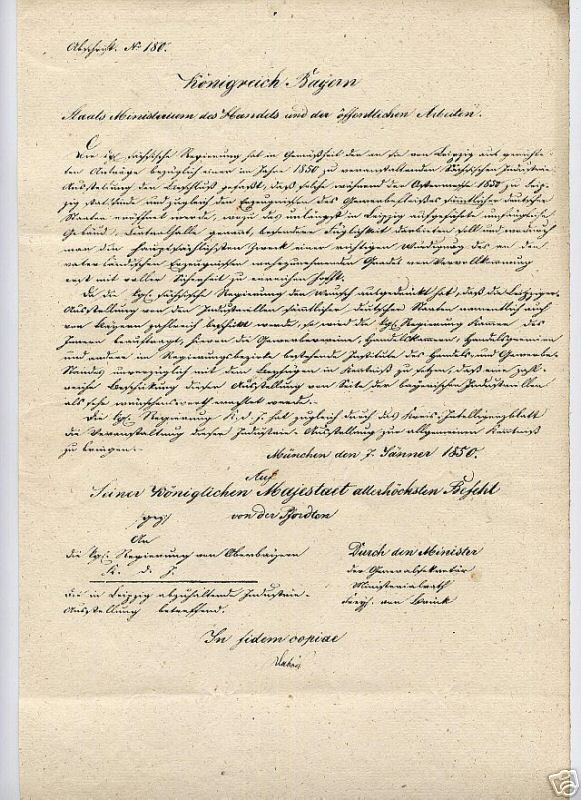 Abschrift. No 180.
Königreich Bayern
Staats Ministerium des Handels und der öffentlichen Arbeiten.
Die kgl. sächsische Regierung hat in Gemäßheit der an sie von Leipzig aus gerichte-
ten Anträge bezüglich einer im Jahre 1850 zu veranstaltenden Sächsischen Industrie
Ausstellung den Beschluß gefaßt, daß solche während der Ostermesse 1850 zu Leip-
zig stattfinde und zugleich den Erzeugnissen des Gewerbefleißes sämtlicher deutscher
Staaten eröffnet werde, wozu das unlängst in Leipzig aufgeführte umfängliche
Gebäude, Centralhalle genannt, besondere Tauglichkeit darbieten soll und wodurch
man den hauptsächlichsten Zweck einer richtigen Würdigung des an den
vaterländischen Erzeugnissen wahrzunehmenden Grades von Vervollkommnung
erst mit voller Sicherheit zu erreichen hofft.
Da die kgl. sächsische Regierung den Wunsch ausgedrückt hat, daß die Leipziger-
Ausstellung von den Industriellen sämtlicher deutscher Staaten namentlich auch
von Bayern zahlreich beschickt werde, so wird die kgl. Regierung Kammer des
Innern beauftragt, hievon die Gewerbevereine, Handelskammern, Handelsgremien
und andere im Regierungsbezirke bestehende Institute des Handels- und Gewerbe-
Standes unverzüglich mit dem Beifügen in Kenntniß zu setzen, daß eine zahl-
reiche Beschickung dieser Ausstellung von Seite der bayerischen Industriellen
als sehr wünschenswerth erachtet werde.
Die kgl. Regierung K. d. J. hat zugleich durch das Kreis-Intelligenzblatt
die Veranstaltung dieser Industrie-Ausstellung zur allgemeinen Kenntniß
zu bringen.
München den 7. Jänner 1850.
Auf
Seiner Königlichen Majestaet allerhöchsten Befehl
gez. von der Pfordten
An
die kgl. Regierung von Oberbayern
K. d. J.
die in Leipzig abzuhaltende Industrie-
Ausstellung betreffend.
Durch den Minister
der Generalsekretär
Ministerialrath
In fidem copiae